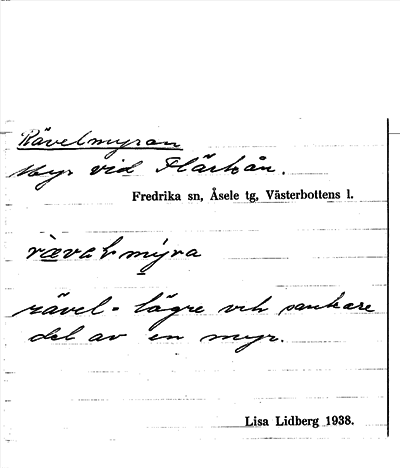 Rävelmyran
Myr vid Flärkån.
Fredrika sn, Åsele tg, Västerbottens l.
rävel = lägre och sankare
del av en myr.
Lisa Lidberg 1938.